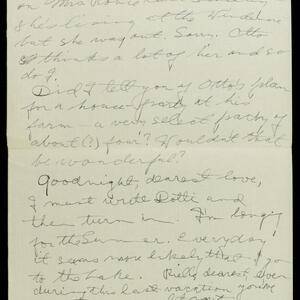 on Mrs
she's living at the Windemere
but she was out. Sorry. Otto
thinks a lot of her and so
do I.
Did I tell you of Otto's plan
for a house-party at his
farm - a very select party of
about (?) four? Wouldn't that
be wonderful?
Goodnight, dearest love,
I must write Dottie and
then turn in. I'm longing
for the Summer. Everyday
it seems more likely that I go
to the Lake. dearest, even
during this last vacation you've